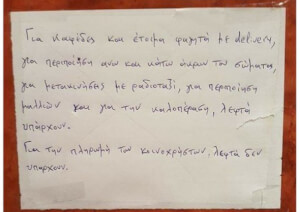 Για καφέδες και έτοιμα φαγητά με delivery,
για περιποίηση ανω και κάτω άκρων του σώματος,
για μετακινήσεις με ραδιοταξί, για περιποίηση
μαλλιών και για την καλοπέραση, λεφτά
υπάρχουν.
Για την πληρωμή των κοινοχρήστων, λεφτά δεν
υπάρχουν.